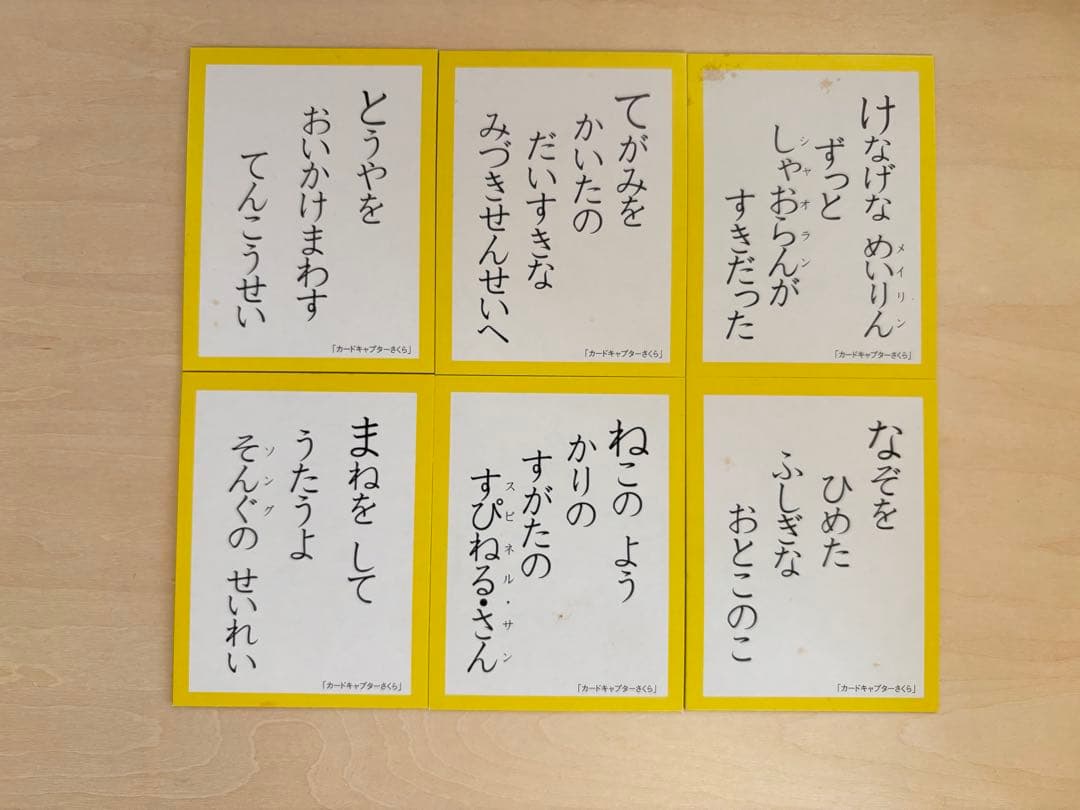 とうやを
おいかけまわす
てんこうせい
「カードキャプターさくら」
てがみを
かいたの
だいすきな
みづきせんせいへ
「カードキャプターさくら」
けなげな めいりん
メイリン
ずっと
しゃおらんが
シャオラン
すきだった
「カードキャプターさくら」
まねを して
うたうよ
そんぐの せいれい
ソング
「カードキャプターさくら」
ねこの よう
かりの
すがたの
すぴねる・さん
スピネル・サン
「カードキャプターさくら」
なぞを
ひめた
ふしぎな
おとこのこ
「カードキャプターさくら」